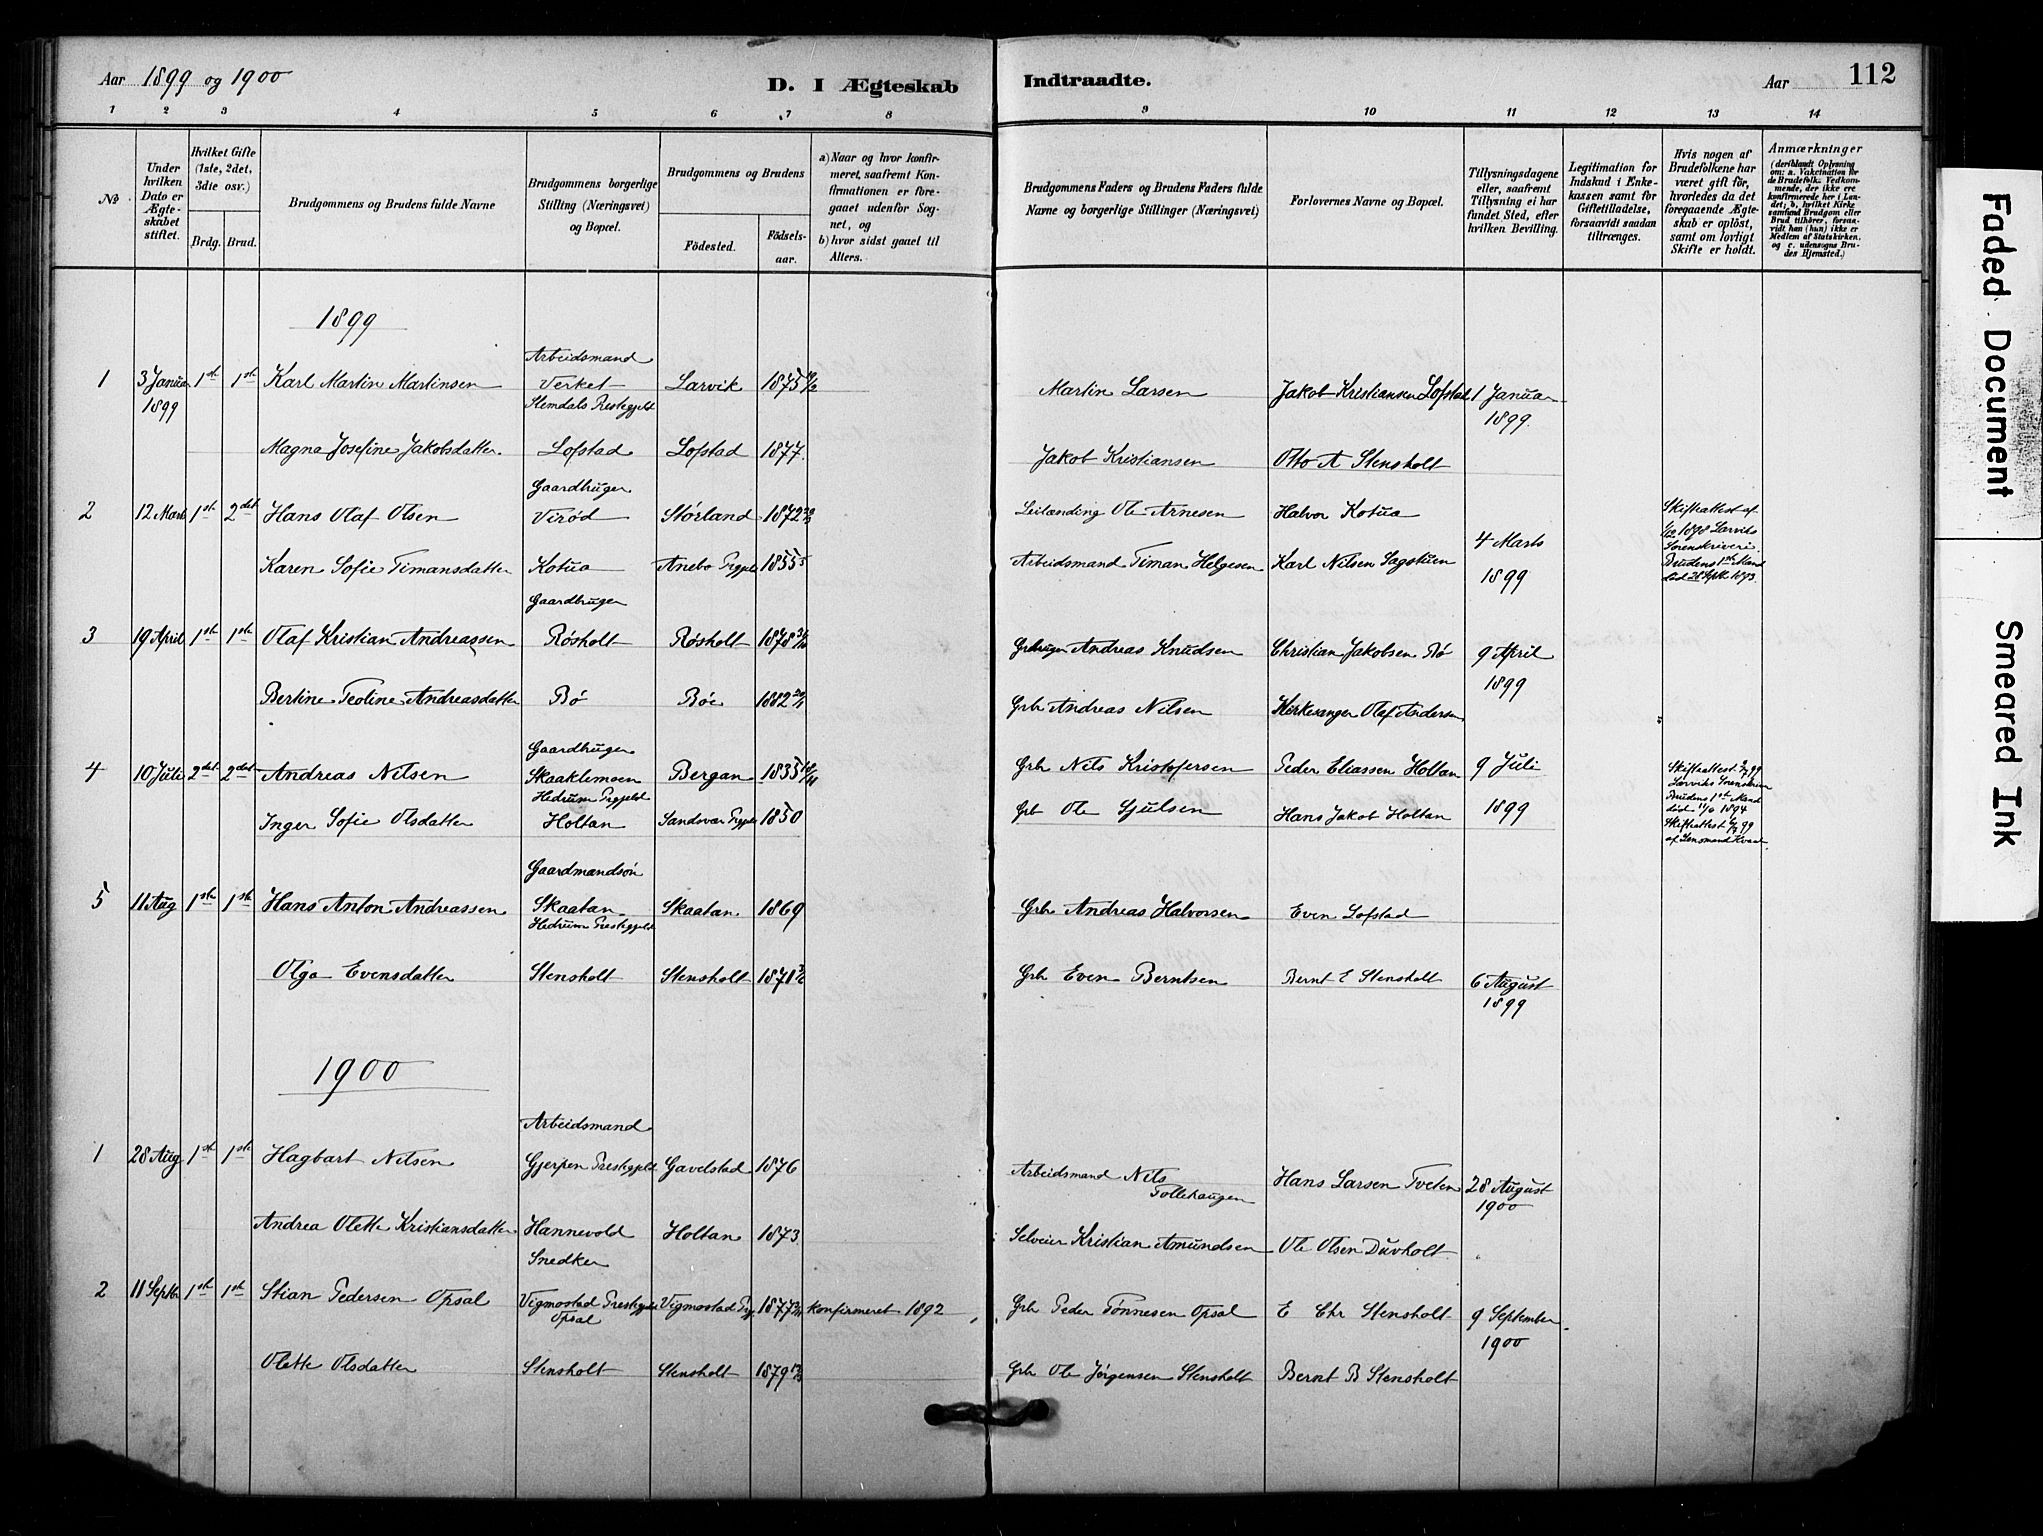 Aar 1899 og 1900
D. I Ægteskab Indtraadte.
Aar 112
1 2 3 4 5 6 7 8 9 10 11 12 13 14
No
Under hvilken Dato er Ægte-skabet stiftet.
Hvilket Gifte (1ste, 2det, 3die osv.)
Brdg. Brud.
Brudgommens og Brudens fulde Navne
Brudgommens borgerlige Stilling (Næringsvei) og Bopæl.
Brudgommens og Brudens
Fødested. Fødsels-aar.
a) Naar og hvor konfir-meret, saafremt Kon-firmationen er fore-gaaet udenfor Sog-net, og
b) hvor sidst gaaet til Alters.
Brudgommens Faders og Brudens Faders fulde Navne og borgerlige Stillinger (Næringsvei)
Forlovernes Navne og Bopæl.
Tillysningsdagene eller, saafremt Tillysning ei har fundet Sted, efter hvilken Bevilling.
Legitimation for Indskud i Enke-kassen samt for Giftetilladelse, forsaavidt saadan tiltrænges.
Hvis nogen af Brudefolkene har været gift før, hvorledes da det foregaaende Ægte-skab er opløst, samt om lovligt Skifte er holdt.
Anmærkninger
(deriblandt Oplysning om: a. Vakcination for de Brudefolk. Vedkom-mende, der ikke ere konfirmerede her i Lan-det; b, hvilket Kirke samfund Brudgom eller Brud tilhører, forsaa-vidt han (hun) ikke er Medlem af Statskirken. og c. udensogns Bru-des Hjemsted.)
1899
Arbeidsmand
1 3 Januar 1899 1ste 1ste Karl Martin Martinsen Verket Larvik 1875 Martin Larsen Jakob Kristiansen Lofstad 1 Januar 1899.
Slemdals Prestegjeld
Magna Josefine Jakobsdatter Lofstad Lofstad 1877. Jakob Kristiansen Otto A Stensholt
Gaardbruger
2 12 Marts 1ste 2det Hans Olaf Olsen Virød Størland 1872 Leilænding Ole Arnesen Halvor Kotua 4 Marts 1899
Skifteattest af 1898 Larviks Sorenskriveri. Brudens 1ste Mand død 28 Septbr 1893.
Karen Sofie Timansdatter Kotua Anebo Prgjeld 1855 Arbeidsmand Timan Helgesen Karl Nilsen Sagstuen
Gaardbruger
3 19 April 1ste 1ste Olaf Kristian Andreassen Røsholt Røsholt 1878 Grbruger Andreas Knudsen Christian Jakobsen Bø 9 April 1899
Bertine Teoline Andreasdatter Bø Böe 1882 Grbr Andreas Nilsen Kirkesanger Olaf Andersen
Gaardbruger
4 10 Juli 2det 2det Andreas Nilsen Skaaklemoen Bergan 1855 Grbr Nils Kristofersen Peder Eliassen Holtan 9 Juli 1899
Hedrum Prgjeld
Inger Sofie Olsdatter Holtan Sandsvær Prgjeld 1850 Grb Ole Gjulsen Hans Jakob Holtan
Brudens 1ste Mand død 1894
Gaardmandsøn
5 11 Aug 1ste 1ste Hans Anton Andreassen Skaatan Skaatan 1869 Grbr Andreas Halvorsen Even Lofstad
Hedrum Prestegjeld
Olga Evensdatter Stensholt Stensholt 1878 Grb Even Berntsen Bernt E Stensholt 6 August 1899
1900
Arbeidsmand
1 28 Aug 1ste 1ste Hagbart Nilsen Gjerpen Prestegjeld Gavelstad 1876 Arbeidsmand Nils Tollehaugen Hans Larsen Tveten 28 August 1900
Andrea Olette Kristiansdatter Hannevold Holtan 1873 Selveier Kristian Amundsen Ole Olsen Duvholt
Snedker
2 11 Septbr 1ste 1ste Stian Pedersen Opsal Vigmostad Prestegjeld Opsal Vigmostad Prg. 1877 Konfirmeret 1892 Grb Peder Tönnesen Opsal E Chr Stensholt 9 September 1900
Olette Olsdatter Stensholt Stensholt 1879 Grb Ole Jørgensen Stensholt Bernt B Stensholt
Faded Document
Smeared Ink